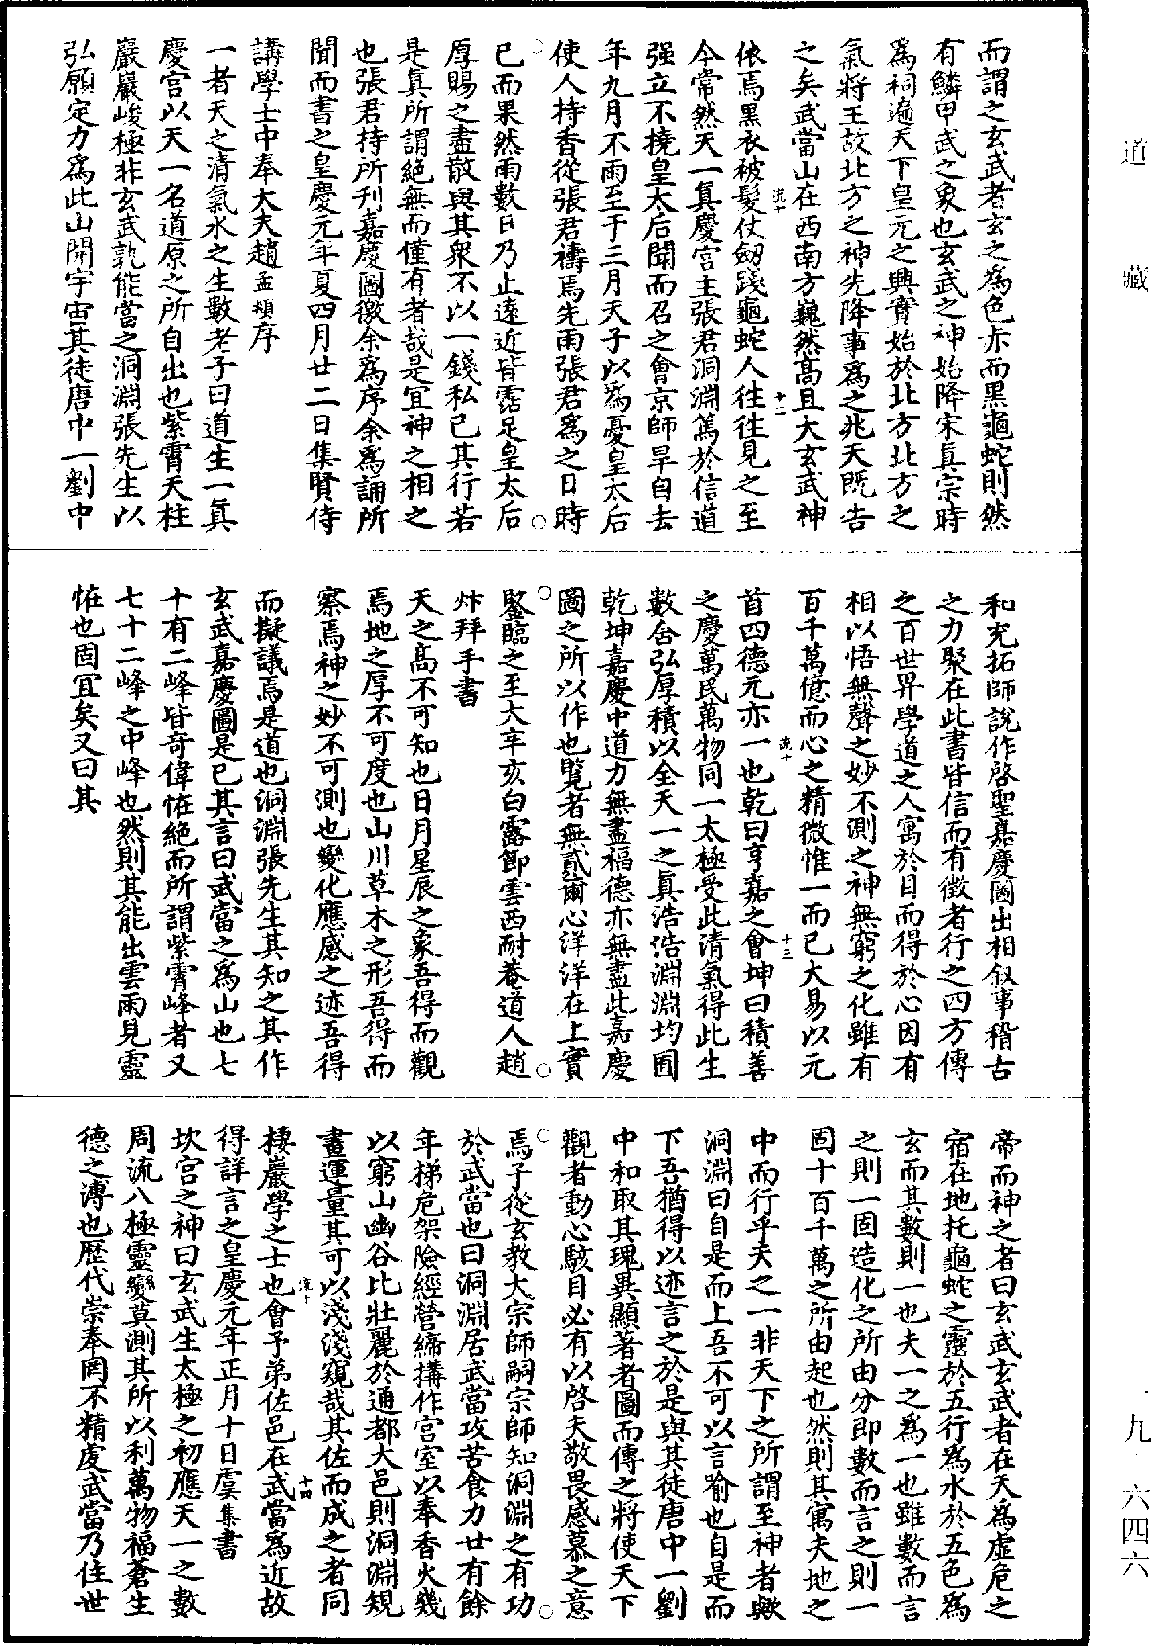 而謂之玄武者玄之為色赤而黑龜蛇則然
有鱗甲武之象也玄武之神始降宋真宗時
為祠遍天下皇元之興實始於北方北方之
氣將王故北方之神先降事為之兆天既告
之矣武當山在西南方巍然高且大玄武神
流十
十二
依焉黑衣被髮仗劒踐龜蛇人往往見之至
今常然天一真慶宮主張君洞淵篤於信道
强立不撓皇太后聞而召之會京師旱自去
年九月不雨至于三月天子以為憂皇太后
使人持香從張君禱焉先雨張君為之日時
已而果然雨數日乃止遠近皆霑足皇太后
厚賜之盡散與其衆不以一錢私已其行若
是真所謂絕無而僅有者哉是宜神之相之
也張君持所刊嘉慶圖徵余為序余為誦所
聞而書之皇慶元年夏四月廿二日集賢侍
講學士中奉大夫趙孟頫序
一者天之清氣水之生數老子曰道生一真
慶宮以天一名道原之所自出也紫霄天柱
巖巖峻極非玄武孰能當之洞淵張先生以
弘願定力為此山開宇宙其徒唐中一劉中
和充拓師說作啓聖嘉慶圖出相叙事稽古
之力聚在此書皆信而有徵者行之四方傳
之百世昇學道之人寓於目而得於心因有
相以悟無聲之妙不測之神無窮之化雖有
百千萬億而心之精微惟一而已大易以元
流十
十三
首四德元亦一也乾曰亨嘉之會坤曰積善
之慶萬民萬物同一太極受此清氣得此生
數含弘厚積以全天一之真浩浩淵淵均囿
乾坤嘉慶中道力無盡福德亦無盡此嘉慶
圖之所以作也覽者無貳爾心洋洋在上實
鑒臨之至大辛亥白露節雲西耐菴道人趙
炞拜手書
天之高不可知也日月星辰之象吾得而觀
焉地之厚不可度也山川草木之形吾得而
察焉神之妙不可測也變化應感之迹吾得
而擬議焉是道也洞淵張先生其知之其作
玄武嘉慶圖是已其言曰武當之為山也七
十有二峰皆奇偉怪絕而所謂紫霄峰者又
七十二峰之中峰也然則其能出雲雨見靈
怪也固宜矣又曰其
帝而神之者曰玄武玄武者在天為虛危之
宿在地托龜蛇之靈於五行為水於五色為
玄而其數則一也夫一之為一也雖數而言
之則一固造化之所由分即數而言之則一
固十百千萬之所由起也然則其寓夫地之
中而行乎天之一非天下之所謂至神者歟
洞淵曰自是而上吾不可以言喻也自是而
下吾猶得以迹言之於是與其徒唐中一劉
中和取其瑰異顯著者圖而傳之將使天下
觀者動心駭目必有以啓夫敬畏感慕之意
焉子從玄教大宗師嗣宗師知洞淵之有功
於武當也曰洞淵居武當攻苦食力廿有餘
年梯危架險經營締搆作宮室以奉香火幾
以窮山幽谷比壯麗於通都大邑則洞淵規
畫運量其可以淺淺窺哉其佐而成之者同
流十
十四
棲巖學之士也會予弟佐邑在武當為近故
得詳言之皇慶元年正月十日虞集書
坎宮之神曰玄武生太極之初應天一之數
周流八極靈變莫測其所以利萬物福蒼生
德之溥也歷代崇奉罔不精虔武當乃住世
道藏
一九·六四六